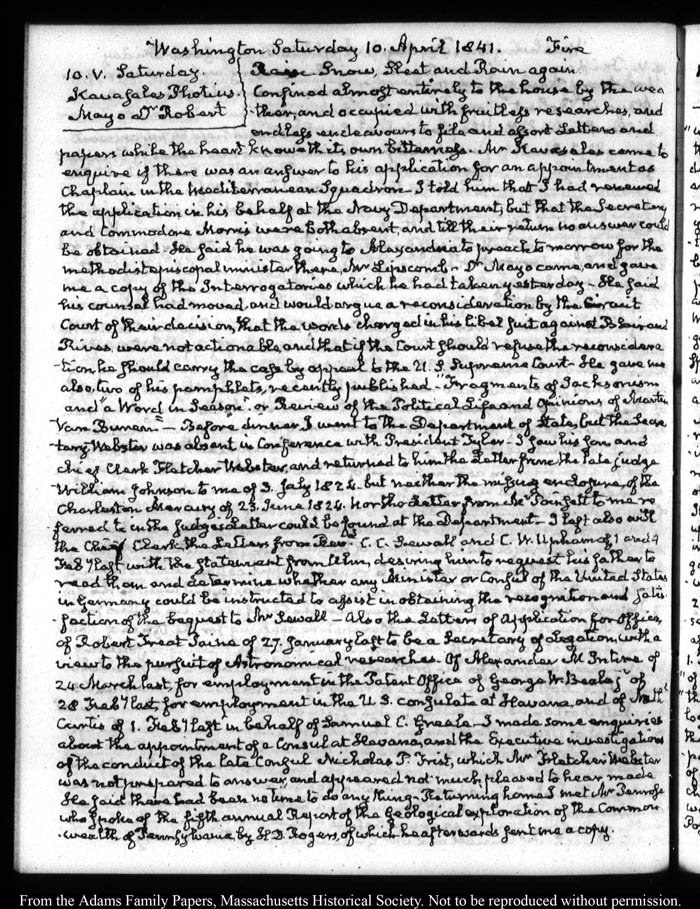 Washington Saturday 10. April 1841. Fire
10. V. Saturday.
Kavasales Photius.
Mayo Dr Robert
Snow, Sleet and Rain again
Confined almost entirely to the house by the wea
ther, and occupied with fruitless researches, and
endless endeavours to file and assort Letters and
papers while the heart knoweth its own bitterness. Mr Kavasales came to
enquire if there was an answer to his application for an appointment as
Chaplain in the Mediterranean Squadron. I told him that I had renewed
the application in his behalf at the Navy Department, but that the Secretary
and Commodore Morris were both absent, and till their return no answer could
be obtained. He said he was going to Alexandria to preach to morrow for the
methodist episcopal minister there, Mr Lipscomb - Dr Mayo came, and gave
me a copy of the Interrogatories which he had taken yesterday - He said
his counsel had moved, and would argue a reconsideration by the Circuit
Court of their decision, that the words charged in his libel suit against Blair and
Rives, were not actionable, and that if the Court should refuse the reconsidera
-tion he should carry the case by appeal to the U. S. Supreme Court - He gave me
also, two of his pamphlets, recently published - "Fragments of Jacksonism
and "a Word in Season". or Review of the Political Life and Opinions of Martin
Van Buren" - Before dinner, I went to the Department of State, but the Secre
-tary Webster was absent in Conference with President Tyler - I saw his son and
chief Clerk Fletcher Webster, and returned to him the Letter from the late judge
William Johnson to me of 3. July 1824. but neither the missing enclosure, of the
Charleston Mercury of 23. June 1824. nor the Letter from Mr to me re
ferred to in the judges Letter could be found at the Department - I left also with
the Chief Clerk the Letters from C. C. Sewall and C. W. Upham of 1 and 4
Feby last with the Statement from desiring him to request his father to
read them and determine whether any Minister or Consul of the United States
in Germany could be instructed to assist in obtaining the recognition and satis
-faction of the bequest to Mr Sewall - Also the Letters of Application for Office,
of Robert Treat Paine of 27. January last to be a Secretary of Legation, with a
view to the pursuit of Astronomical researches. Of Alexander M. Intire of
24. March last, for employment in the Patent Office of George W. of
28 Feby last for employment in the U S. consulate at Havana, and of Nathl
Curtis of 1. Feby last in behalf of Samuel C. Greele. I made some enquiries
about the appointment of a Consul at Havana, and the Executive investigations
of the conduct of the late Consul Nicholas P. Trist, which Mr Fletcher Webster
was not prepared to answer, and appeared not much pleased to hear made
He said there had been no time to do any thing - Returning home I met Mr Penrose
who spoke of the fifth annual Report of the Geological exploration of the Common
-wealth of Pennsylvania, by H D Rogers, of which he afterwards sent me a copy.
From the Adams Family Papers, Massachusetts Historical Society. Not to be reproduced without permission.